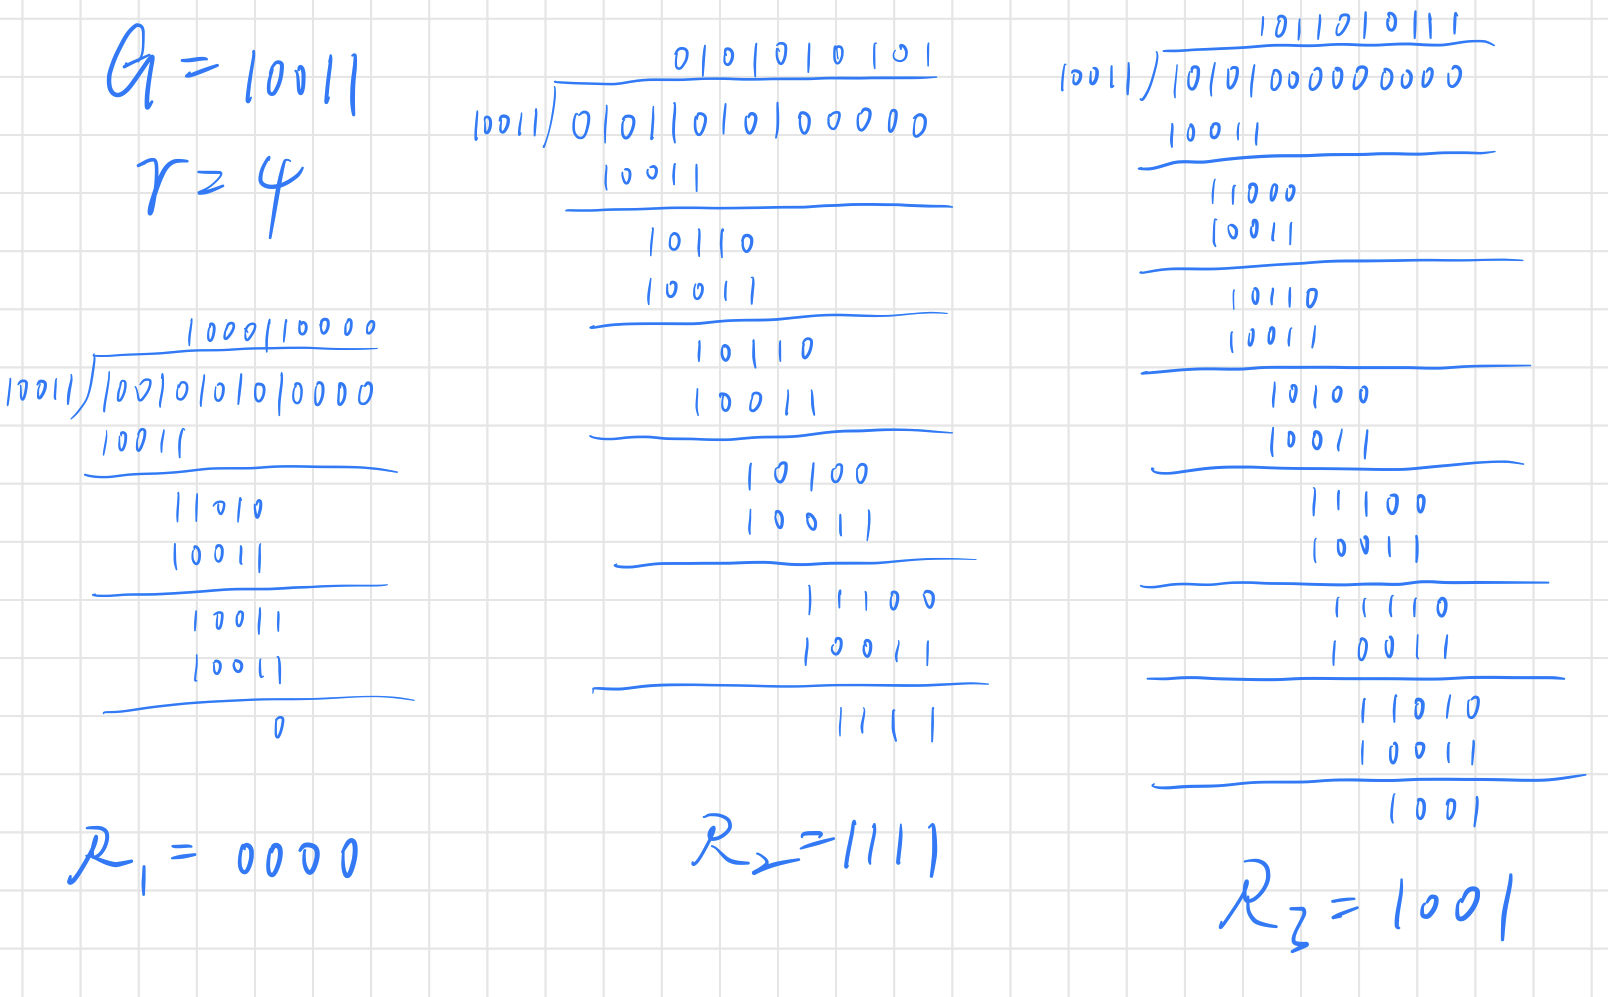 G = 10011
r = 4
1000110000
10011 ) 10010101010000
10011
11010
10011
10011
10011
0
R1 = 0000
0101010101
10011 ) 01011010100000
10011
10110
10011
10110
10011
10100
10011
11100
10011
1111
R2 = 1111
1011010111
10011 ) 10101000000000
10011
11000
10011
10110
10011
10100
10011
11100
10011
11110
10011
11010
10011
1001
R3 = 1001